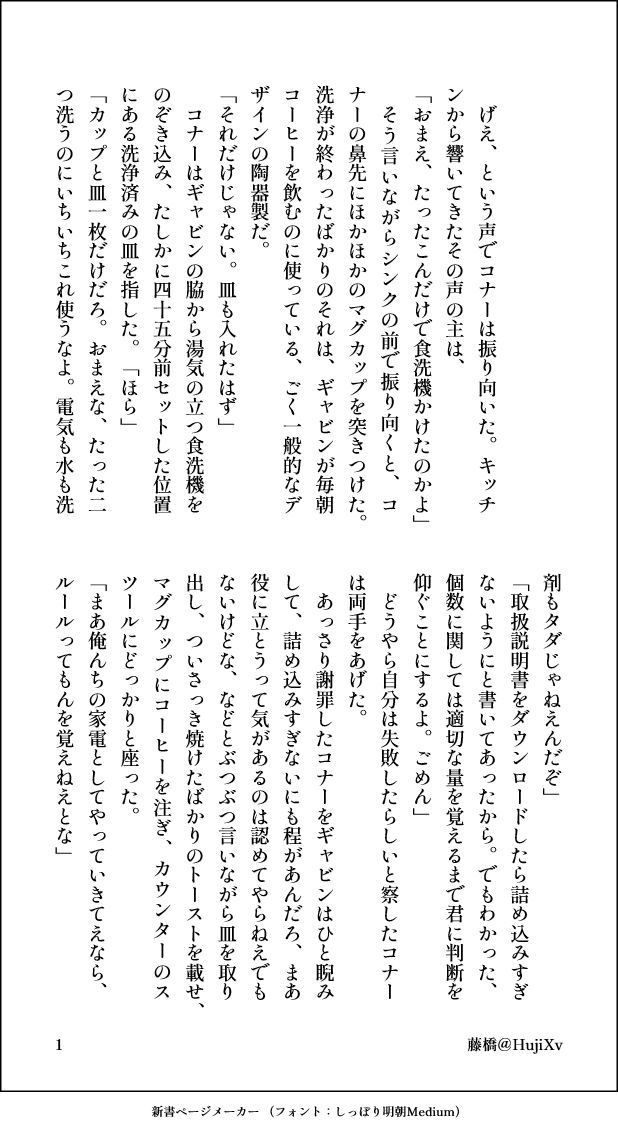 げえ、という声でコナーは振り向いた。キッチ
ンから響いてきたその声の主は、
「おまえ、たったこんだけで食洗機かけたのかよ」
　そう言いながらシンクの前で振り向くと、コ
ナーの鼻先にほかほかのマグカップを突きつけた。
洗浄が終わったばかりのそれは、ギャビンが毎朝
コーヒーを飲むのに使っている、ごく一般的なデ
ザインの陶器製だ。
「それだけじゃない。皿も入れたはず」
　コナーはギャビンの脇から湯気の立つ食洗機を
のぞき込み、たしかに四十五分前セットした位置
にある洗浄済みの皿を指した。「ほら」
「カップと皿一枚だけだろ。おまえな、たった二
つ洗うのにいちいちこれ使うなよ。電気も水も洗
剤もタダじゃねえんだぞ」
「取扱説明書をダウンロードしたら詰め込みすぎ
ないようにと書いてあったから。でもわかった、
個数に関しては適切な量を覚えるまで君に判断を
仰ぐことにするよ。ごめん」
　どうやら自分は失敗したらしいと察したコナー
は両手をあげた。
　あっさり謝罪したコナーをギャビンはひと睨み
して、詰め込みすぎないにも程があんだろ、まあ
役に立とうって気があるのは認めてやらねえでも
ないけどな、などとぶつぶつ言いながら皿を取り
出し、ついさっき焼けたばかりのトーストを載せ、
マグカップにコーヒーを注ぎ、カウンターのス
ツールにどっかりと座った。
「まあ俺んちの家電としてやっていきてえなら、
ルールってもんを覚えねえとな」
藤橋@HujiXv
1
新書ページメーカー（フォント：しっぽり明朝Medium）